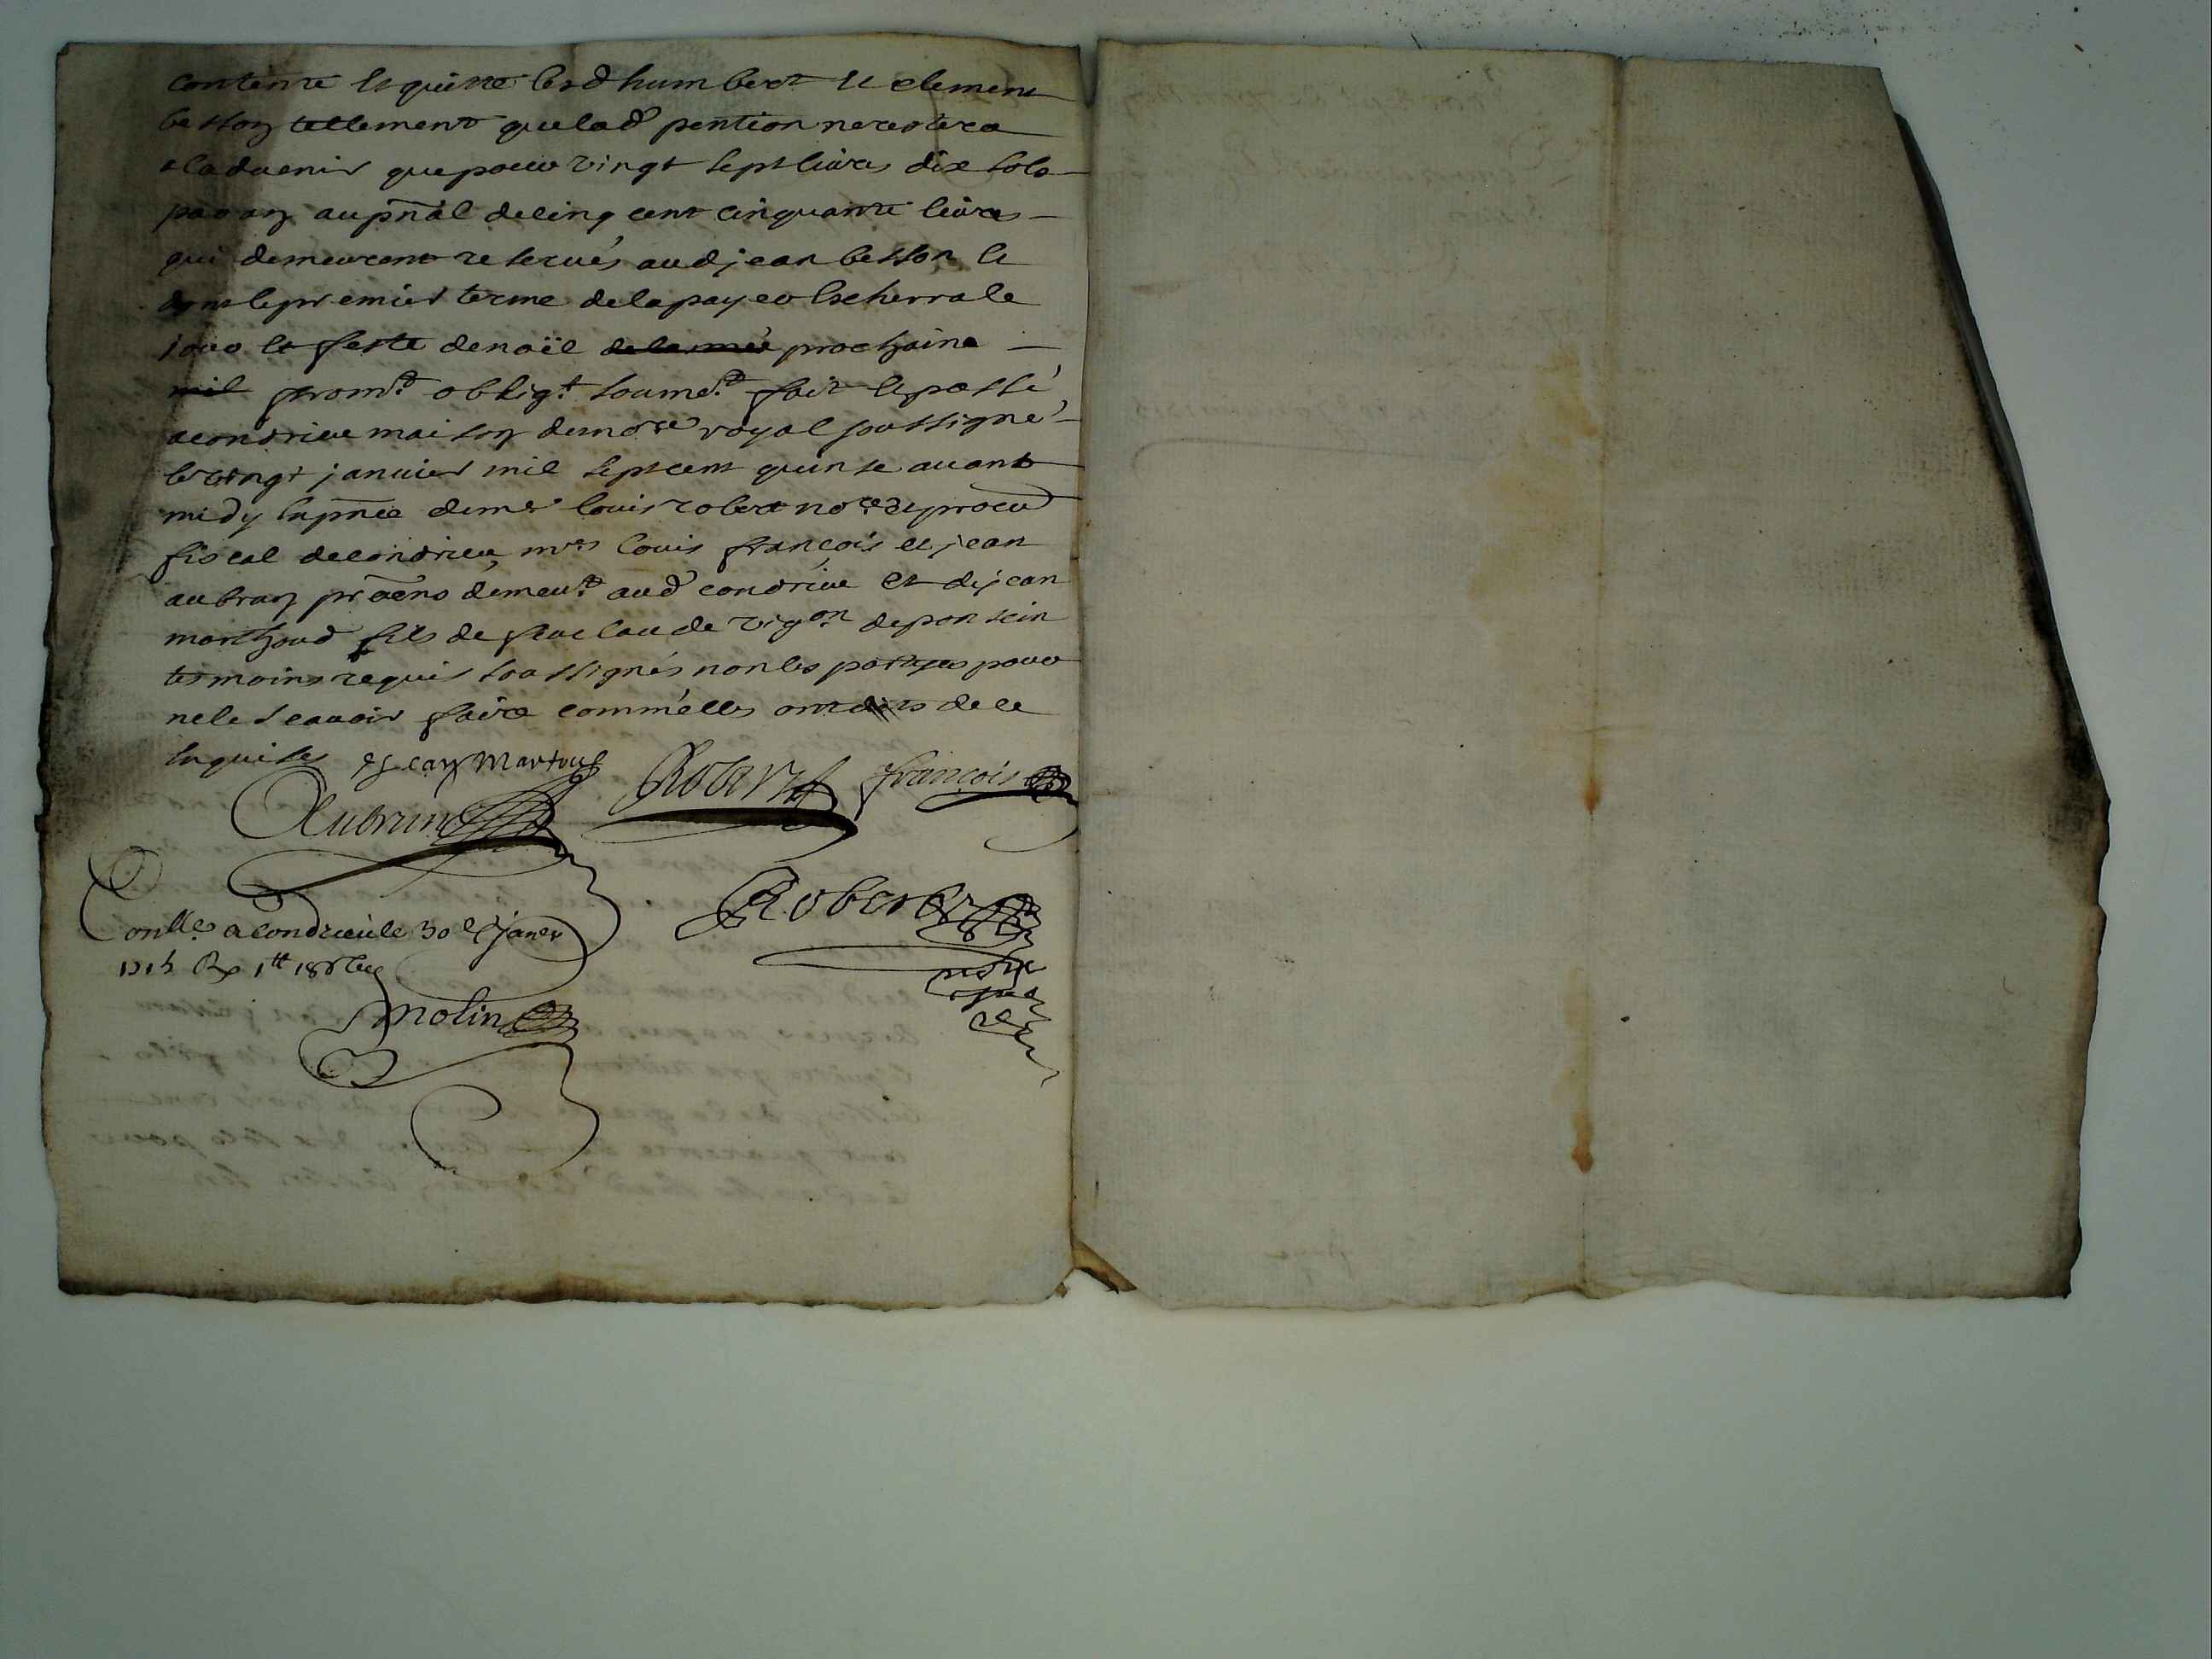 contente et quitte lesd humbert et clement
besson tellement quelad pention nerestera
aladuenir quepour vingt sept liures dix sols
par an aupñal decinq cent cinquante liures
qui demeurent reserués aud jean besson et
dont lepremier terme delapaye escherra le
jour et feste denoël prochaine
mil promt obligt soumt fait et passé
acondrieu maison demore royal soussigné
le vingt januier mil sept cent quinse auant
midy en pñce deme louis robert nore et procu
fiscal decondrieu, mes louis françois et jean
aubran demeut aud condrieu et de jean
marthoud fils de feu claude vigon depontein
tesmoins requis soussignés non les partyes pour
nele scauoir faire comm'elles ont de ce
enquises Jean Martoud
Robert françois
Aubrun
Robert
Conlle a Condrieu le 30e Janer
1715 Rx 1tt 18s
Molin